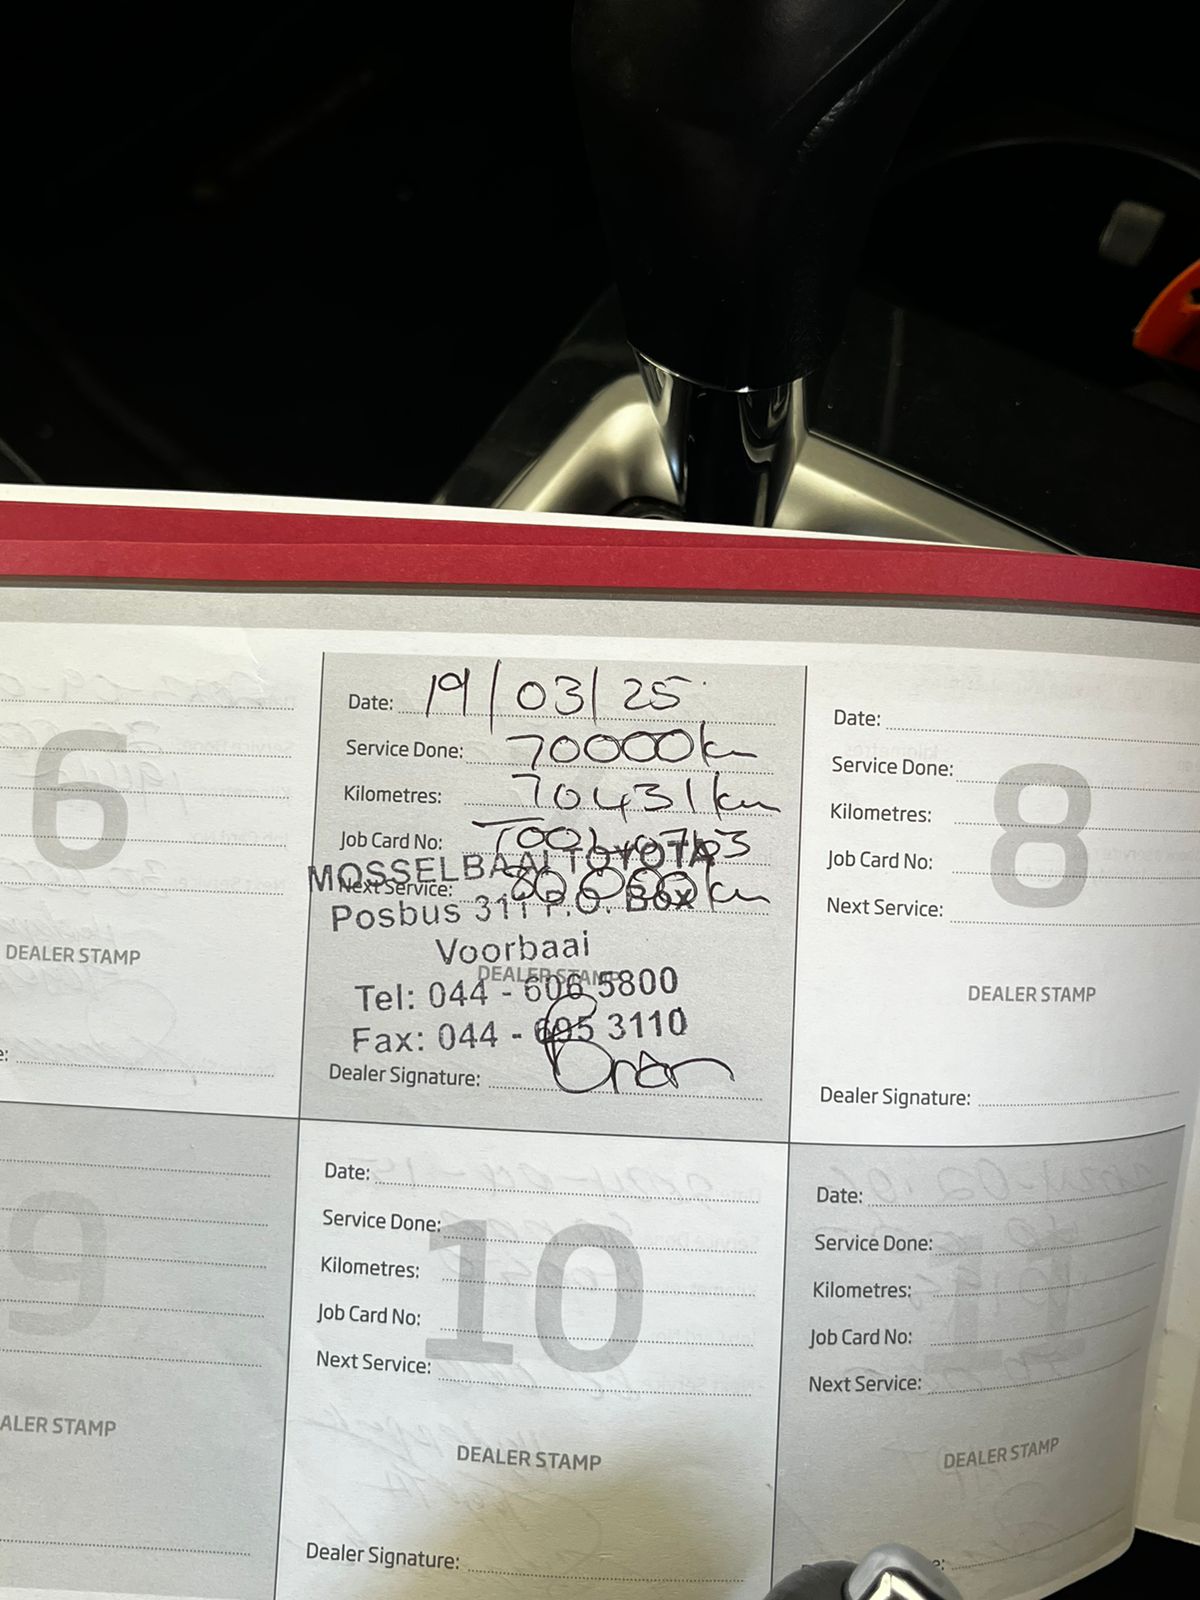 6
DEALER STAMP
Date: 19/03/25
Service Done: 70000km
Kilometres: 70431km
Job Card No:
MOSSELBAAI TOYOTA
Next Service: 80 000km
Posbus 311 P.O. Box
Voorbaai
DEALER STAMP
Tel: 044 - 606 5800
Fax: 044 - 695 3110
Dealer Signature:
8
Date:
Service Done:
Kilometres:
Job Card No:
Next Service:
DEALER STAMP
Dealer Signature:
9
ALER STAMP
10
Date:
Service Done:
Kilometres:
Job Card No:
Next Service:
DEALER STAMP
Dealer Signature:
11
Date:
Service Done:
Kilometres:
Job Card No:
Next Service:
DEALER STAMP